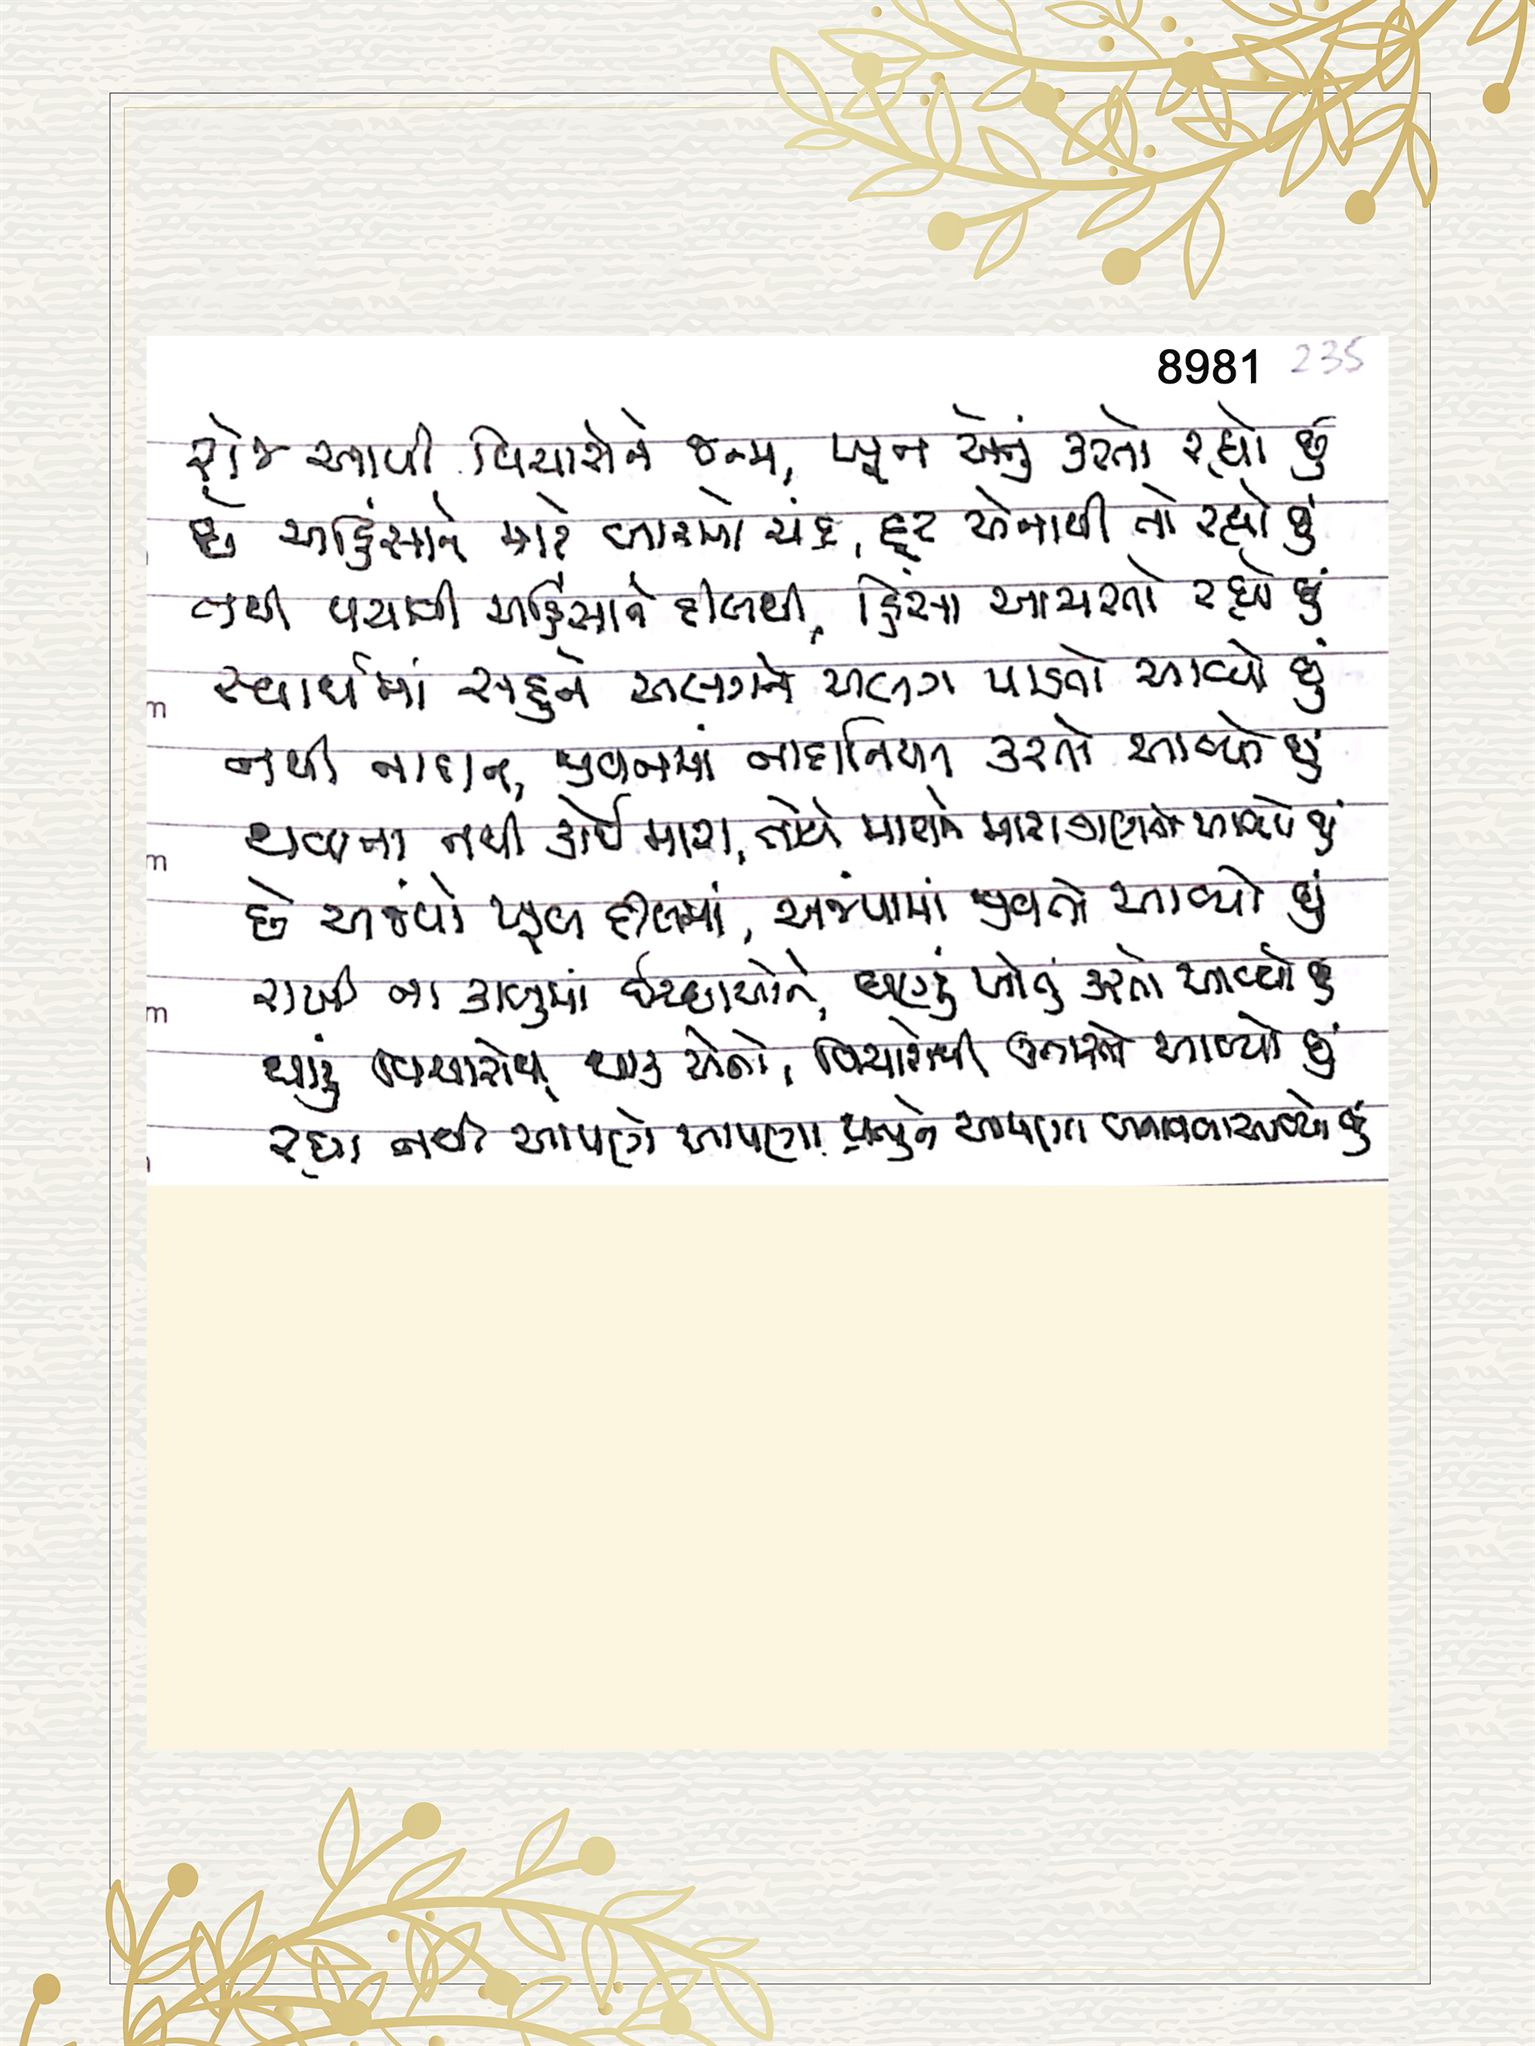 8981 235
રોજ આપી વિચારોને જન્મ, ખૂન એનું કરતો રહ્યો છું
છે અહિંસાને માટે બારમો ચંદ્ર, દૂર એનાથી તો રહ્યો છું
નથી પચાવી અહિંસાને દીલથી, હિંસા આચરતો રહ્યો છું
સ્વાર્થમાં સહુને અલગને અલગ પાડતો આવ્યો છું
નથી નાદાન, જીવનમાં નાદાનિયત કરતો આવ્યો છું
થવાના નથી કોઈ મારા, તોયે મારાને મારા ગણતો આવ્યો છું
છે અજંપો ખૂબ દીલમાં, અજંપામાં જીવતો આવ્યો છું
રાખી ના કાબુમાં ઈચ્છાઓને, ઘણું ખોતું કરતો આવ્યો છું
થાકું વિચારોથી, થાક એનો, વિચારોથી ઉતારતો આવ્યો છું
રહ્યા નથી આપણે આપણા પ્રભુને આપણા બનાવવા આવ્યો છું